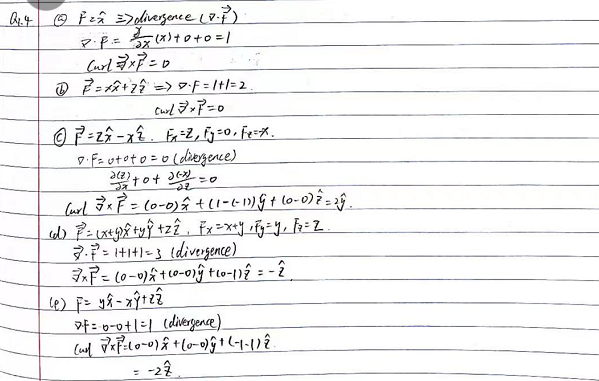 Q1.4 (a) F⃗ = x̂ ⇒ divergence (∇·F⃗)
∇·F = ∂/∂x (x) + 0 + 0 = 1
Curl ∇⃗×F⃗ = 0
(b) F⃗ = xx̂ + zẑ ⇒ ∇·F = 1+1 = 2.
curl ∇⃗×F⃗ = 0
(c) F⃗ = zx̂ - xẑ. Fx = z, Fy = 0, Fz = -x.
∇·F = 0+0+0 = 0 (divergence)
∂(z)/∂x + 0 + ∂(-x)/∂z = 0
Curl ∇⃗×F⃗ = (0-0)x̂ + (1-(-1))ŷ + (0-0)ẑ = 2ŷ.
(d) F⃗ = (x+y)x̂ + yŷ + zẑ. Fx = x+y, Fy = y, Fz = z.
∇⃗·F⃗ = 1+1+1 = 3 (divergence)
∇⃗×F⃗ = (0-0)x̂ + (0-0)ŷ + (0-1)ẑ = -ẑ.
(e) F⃗ = yx̂ - xŷ + zẑ
∇F = 0-0+1 = 1 (divergence)
Curl ∇⃗×F⃗ = (0-0)x̂ + (0-0)ŷ + (-1-1)ẑ
= -2ẑ.